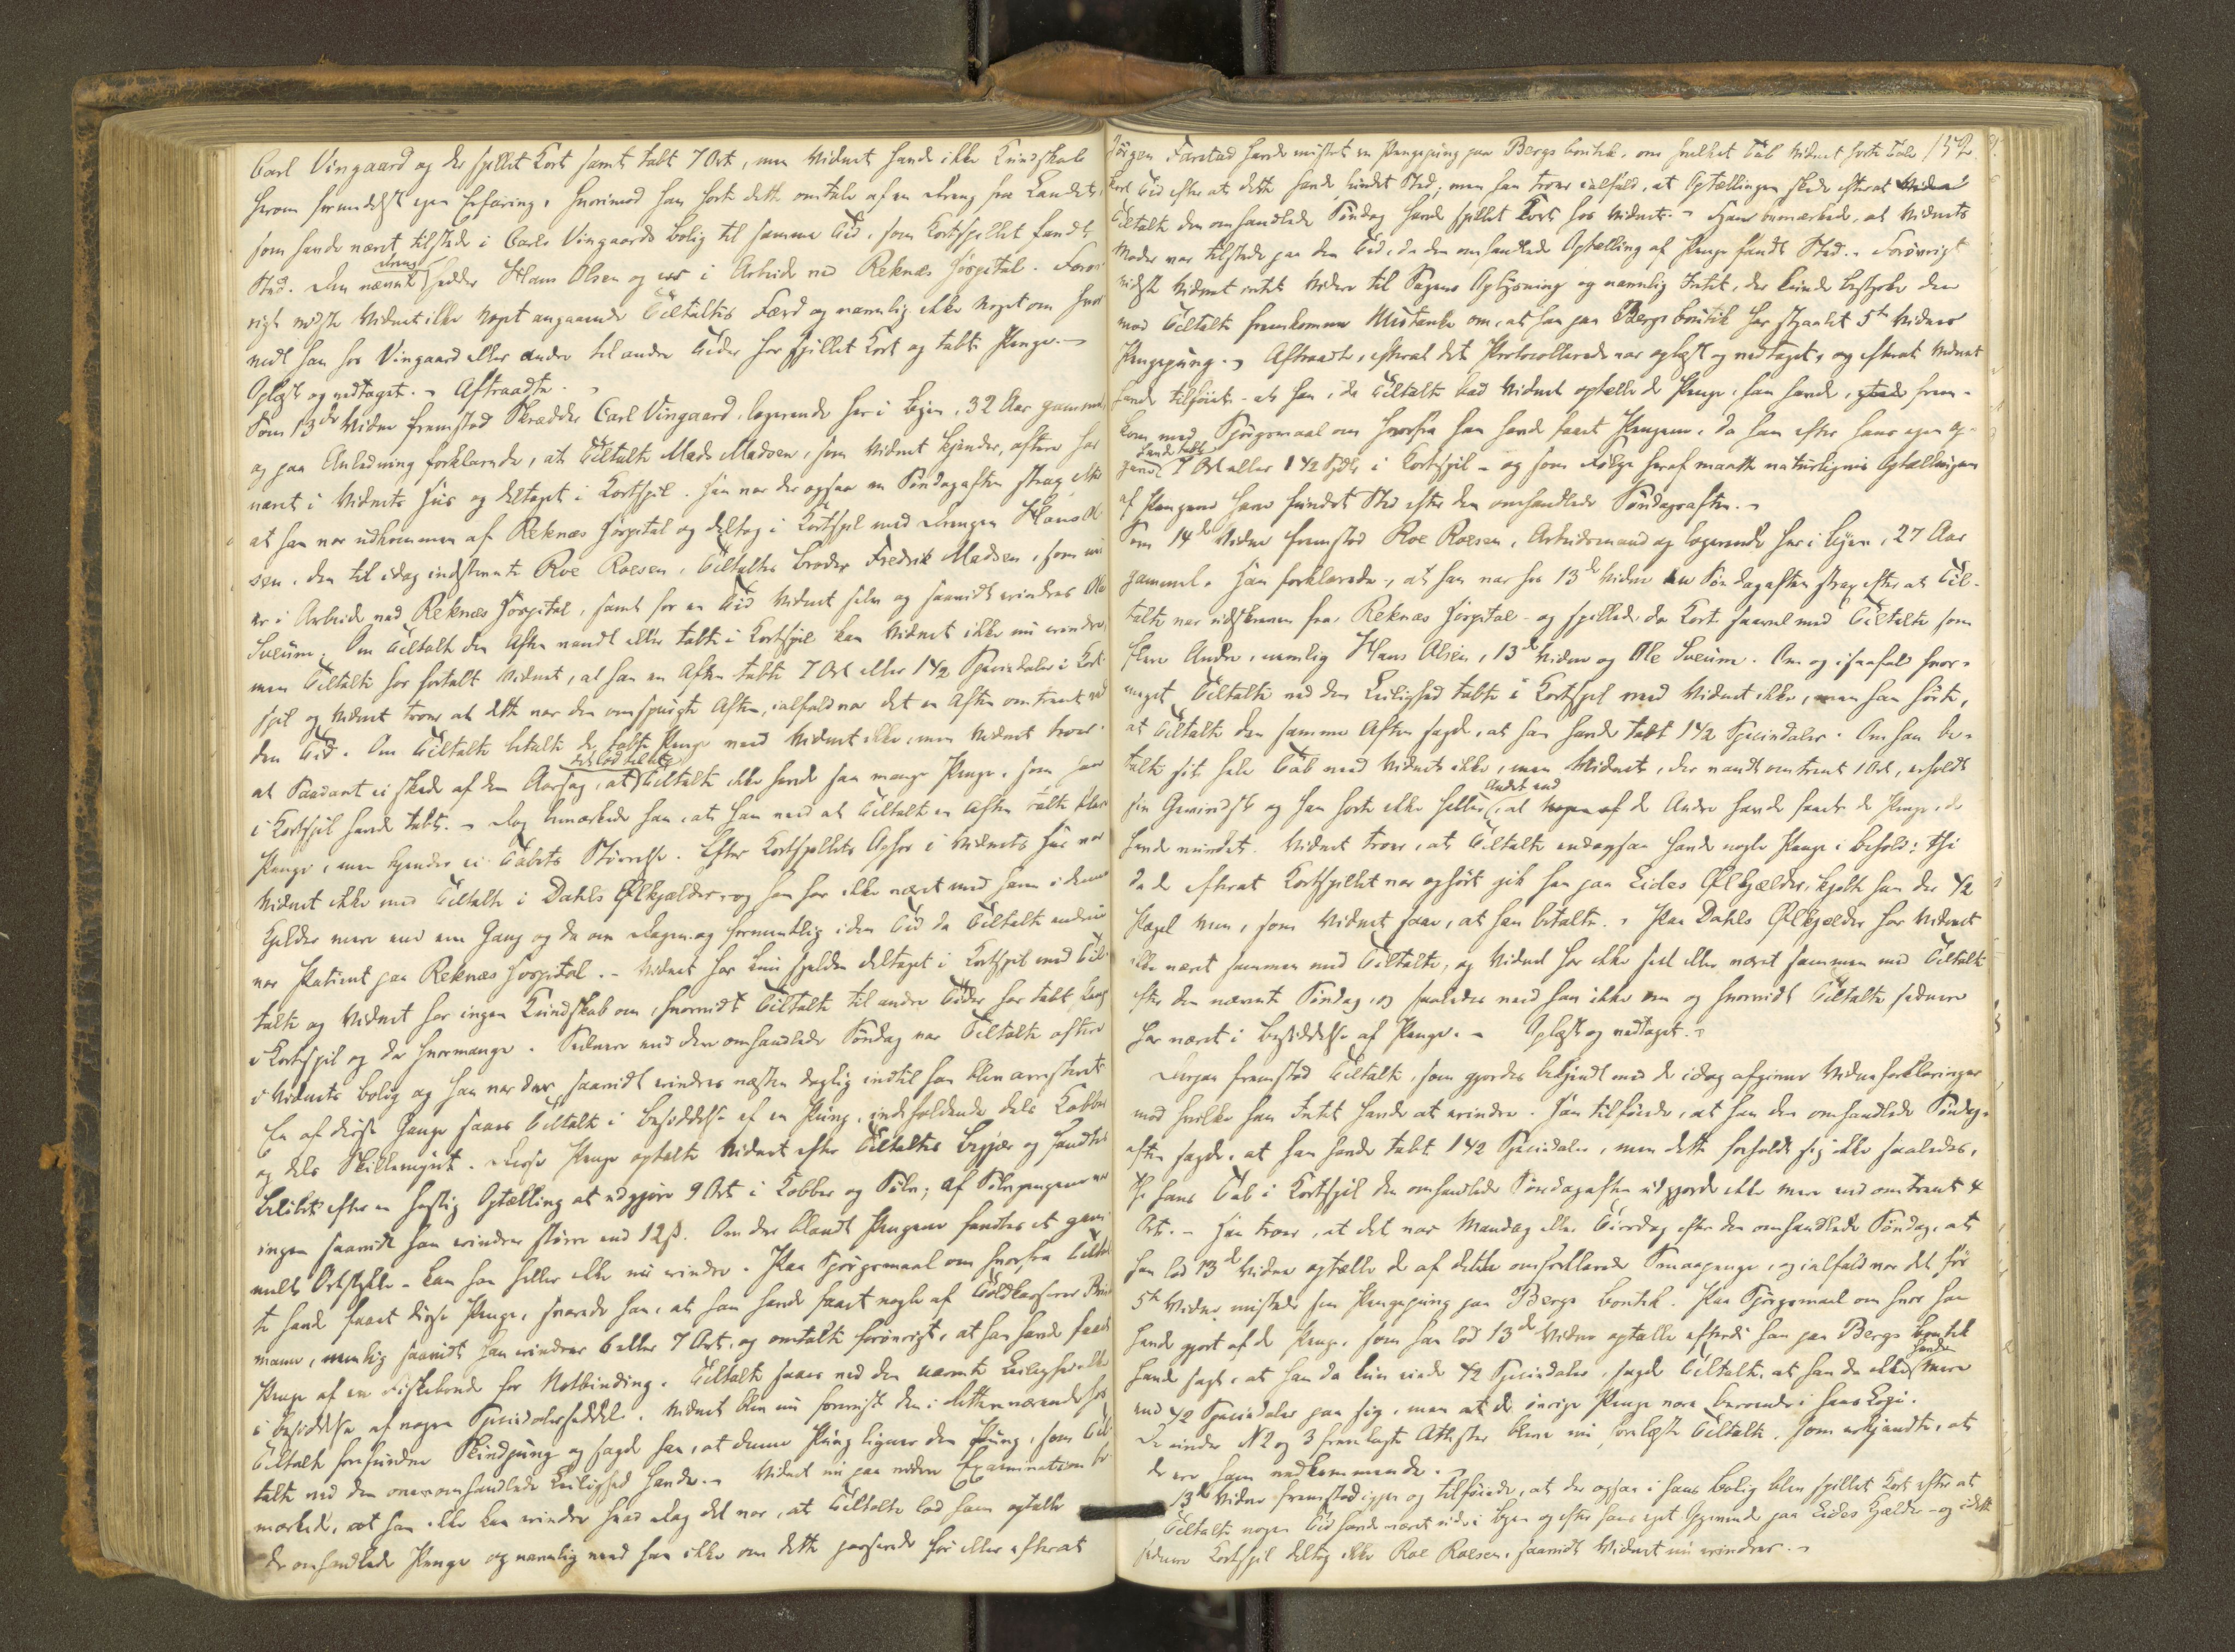 Carl Vingaard og der spillet Kort samt tabt 7 Ort, men Vidnet havde ikke Kundskab
herom formedelst egen Erfaring, hvorimod han hørte dette omtale af en Dreng fra Landet,
som havde været tilstede i Carls Vingaards Bolig til samme Tid, som Kortspillet fandt
Sted. Den nævnte Dreng hedder Hans Olsen og er i Arbeide ved Reknæs Hospital. Forøv
rigt vidste Vidnet ikke Noget angaaende Tiltaltes Færd og navnlig ikke Noget om hvor
vidt han hos Vingaard eller andre til andre Tider har spillet Kort og tabt Penge. -
Oplæst og vedtaget. - Aftraadte. -
Som 13de Vidne fremstod Skrædder Carl Vingaard, logerende her i Byen, 32 Aar gammel
og paa Anledning forklarede, at Tiltalte Mads Madsen, som Vidnet kjender, oftere har
været i Vidnets Huus og deltaget i Kortspil. Han var der ogsaa en Søndagaften strax efter
at han var udkommen af Reknæs Hospital og deltog i Kortspil med Drengen Hans Ol
sen, den til idag indstevnte Roe Roesen, Tiltaltes Broder Fredrik Madsen, som nu
er i Arbeide ved Reknæs Hospital, samt for en Tid Vidnet selv og saavidt erindres Ole
Sveum. Om Tiltalte den Aften vandt eller tabte i Kortspil kan Vidnet ikke nu erindre,
men Tiltalte har fortalt Vidnet, at han en Aften tabte 7 Ort eller 1 1/2 Speciedaler i Kort
spil og Vidnet troer at dette var den omspurgte Aften, ialfald var det en Aften omtrent ved
den Tid. Om Tiltalte betalte de tabte Penge veed Vidnet ikke, men Vidnet troer
at Saadant ei skede af den Aarsag, at Tiltalte ikke havde saa mange Penge, som han
i Kortspil havde tabt. - Dog bemærkede han, at han veed at Tiltalte en Aften talte flere
Penge, men kjender ei Tabets Størrelse. Efter Kortspillets Ophør i Vidnets Huus var
Vidnet ikke med Tiltalte i Dahls Ølkjælder, og han har ikke været med ham i denne
Kjælder mere end een Gang og da om Dagen og formentlig i den Tid da Tiltalte endnu
var Patient paa Reknæs Hospital. - Vidnet har kun sjelden deltaget i Kortspil med Til
talte og Vidnet har ingen Kundskab om, hvorvidt Tiltalte til andre Tider har tabt Penge
i Kortspil og da hvormange. Senere end den omhandlede Søndag var Tiltalte oftere
i Vidnets Bolig og han var der saavidt erindres næsten daglig indtil han blev arresteret
En af disse Gange saaes Tiltalte i Besiddelse af en Pung, indeholdende dels Kobber
og dels Skillemynt. Disse Penge optalte Vidnet efter Tiltaltes Begjær og fandtes
Beløbet efter en hastig Optælling at udgjøre 9 Ort i Kobber og Sølv; af Sølvpengene var
ingen saavidt han erindrer større end 12 ß. Om der blandt Pengene fandtes et gam
melt Ortstykke - kan han heller ikke nu erindre. Paa Spørgsmaal om hvorfra Tiltal
te havde faaet disse Penge, svarede han, at han havde faaet nogle af Toldkasserer Brin
mann, nemlig saavidt han erindrer 6 eller 7 Ort, og omtalte forøvrigt, at han havde faaet
Penge af en Fiskebonde for Notbinding. Tiltalte saaes ved den nævnte Leilighed ikke
i Besiddelse af nogen Speciedalerseddel. Vidnet blev nu forevist den i dette nærværende hos
Tiltalte forefundne Skindpung og sagde han, at denne Pung ligner den Pung, som Til
talte ved den ovenomhandlede Leilighed havde. - Vidnet nu paa videre Examination be
mærkede, at han ikke kan erindre hvad Dag det var, at Tiltalte lod ham optælle
de omhandlede Penge og navnlig veed han ikke om dette passerede før eller efterat
Jørgen Farstad havde mistet en Pengepung paa Bergs boutik, om hvilket Tab Vidnet hørte Tale 152
kort Tid efter at dette havde fundet Sted; men han troer ialfald, at Optællingen skede efterat
Tiltalte den omhandlede Søndag havde spillet Kort hos Vidnet. - Han bemærkede, at Vidnets
Moder var tilstede paa den Tid, da den omhandlede Optælling af Penge fandt Sted. - Forøvrigt
vidste Vidnet intet Videre til Sagens Oplysning og navnlig Intet, der kunde bestyrke den
mod Tiltalte fremkomne Mistanke om, at han paa Bergs boutik har stjaalet 5te Vidnes
Pengepung. - Aftraadte, efterat det Protocollerede var oplæst og vedtaget, og efterat Vidnet
havde tilføiet - at han, da Tiltalte bad Vidnet optælle de Penge, han havde, frem-
kom med Spørgsmaal om hvorfra han havde faaet Pengene, da han efter hans egen op-
gave havde tabt 7 Ort eller 1 1/2 Spdlr i Kortspil - og som Følge heraf maatte naturligvis Optællingen
af Pengene have fundet Sted efter den omhandlede Søndagsaften. -
Som 14de Vidne fremstod Roe Roesen, Arbeidsmand og logerende her i Byen, 27 Aar
gammel. Han forklarede, at han var hos 13de Vidne en Søndagaften strax efter at Til-
talte var udskreven fra Reknæs Hospital - og spillede da Kort saavel med Tiltalte som
flere Andre, nemlig Hans Olsen, 13de Vidne og Ole Sveum. Om og isaafald hvor-
meget Tiltalte ved den Leilighed tabte i Kortspil veed Vidnet ikke, men han hørte,
at Tiltalte den samme Aften sagde, at han havde tabt 1 1/2 Speciedaler. Om han be-
talte sit hele Tab veed Vidnet ikke, men Vidnet, der vandt omtrent 1 Ort, erholdt
sin Gevindst og han hørte ikke heller Andet end at de Andre havde faaet de Penge, de
havde vundet. Vidnet troer, at Tiltalte endogsaa havde nogle Penge i Behold; thi
da de efterat Kortspillet var ophørt gik han paa Eides Ølkjælder, kjøbte han der 1/2
Pægel Viin, som Vidnet saae, at han betalte. - Paa Dahls Ølkjælder har Vidnet
ikke været sammen med Tiltalte, og Vidnet har ikke seet eller været sammen med Tiltalte
efter den nævnte Søndag, og saaledes veed han ikke om og hvorvidt Tiltalte senere
har været i Besiddelse af Penge. - Oplæst og vedtaget. -
Derpaa fremstod Tiltalte, som gjordes bekjendt med de idag afgivne Vidneforklaringer
mod hvilke han Intet havde at erindre. Han tilføiede, at han den omhandlede Søndag-
aften sagde, at han havde tabt 1 1/2 Speciedaler, men dette forholdt sig ikke saaledes,
thi hans Tab i Kortspil den omhandlede Søndagaften udgjorde ikke mere end omtrent 4
Ort. - Han troer, at det var Mandag eller Tirsdag efter den omhandlede Søndag, at
han lod 13de Vidne optælle de af dette omforklarede Smaapenge, og ialfald var det før
5te Vidne mistede sin Pengepung paa Bergs Boutik. Paa Spørgsmaal om hvor han
havde gjort af de Penge, som han lod 13de Vidne optælle efterdi han paa Bergs boutik
havde sagt, at han da kun eiede 1/2 Speciedaler, sagde Tiltalte, at han da ikke havde mere
end 1/2 Speciedaler paa sig, men at de øvrige Penge vare beroende i hans Logi.
De under N 2 og 3 fremlagte Attester bleve nu forelæste Tiltalte, som erkjendte, at
de ere ham vedkommende. -
13de Vidne fremstod igjen og tilføiede, at der ogsaa i hans Bolig blev spillet Kort efter at
Tiltalte nogen Tid havde været ude i Byen og efter hans eget Opgivende paa Eides Kjælder - og i dette
senere Kortspil deltog ikke Roe Roesen, saavidt Vidnet nu erindrer. -